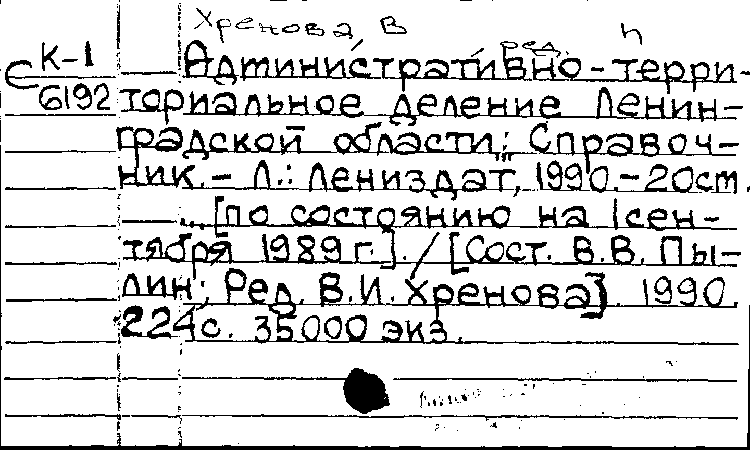 Хренова, В
ред. п
К-1 Административно-терри-
С 6192 ториальное деление Ленин-
градской области: Справоч-
ник. - Л.: Лениздат, 1990. - 20 см.
— ... [по состоянию на 1 сен-
тября 1989 г.]. / [Сост. В.В. Пы-
лин; Ред. В.И. Хренова]. 1990.
224 с. 35000 экз.